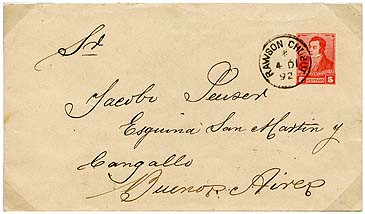 Sr
Jacobo Peuser
Esquina San Martin y
Cangallo
Buenos Aires
RAWSON CHUBUT
4 DI
92
5